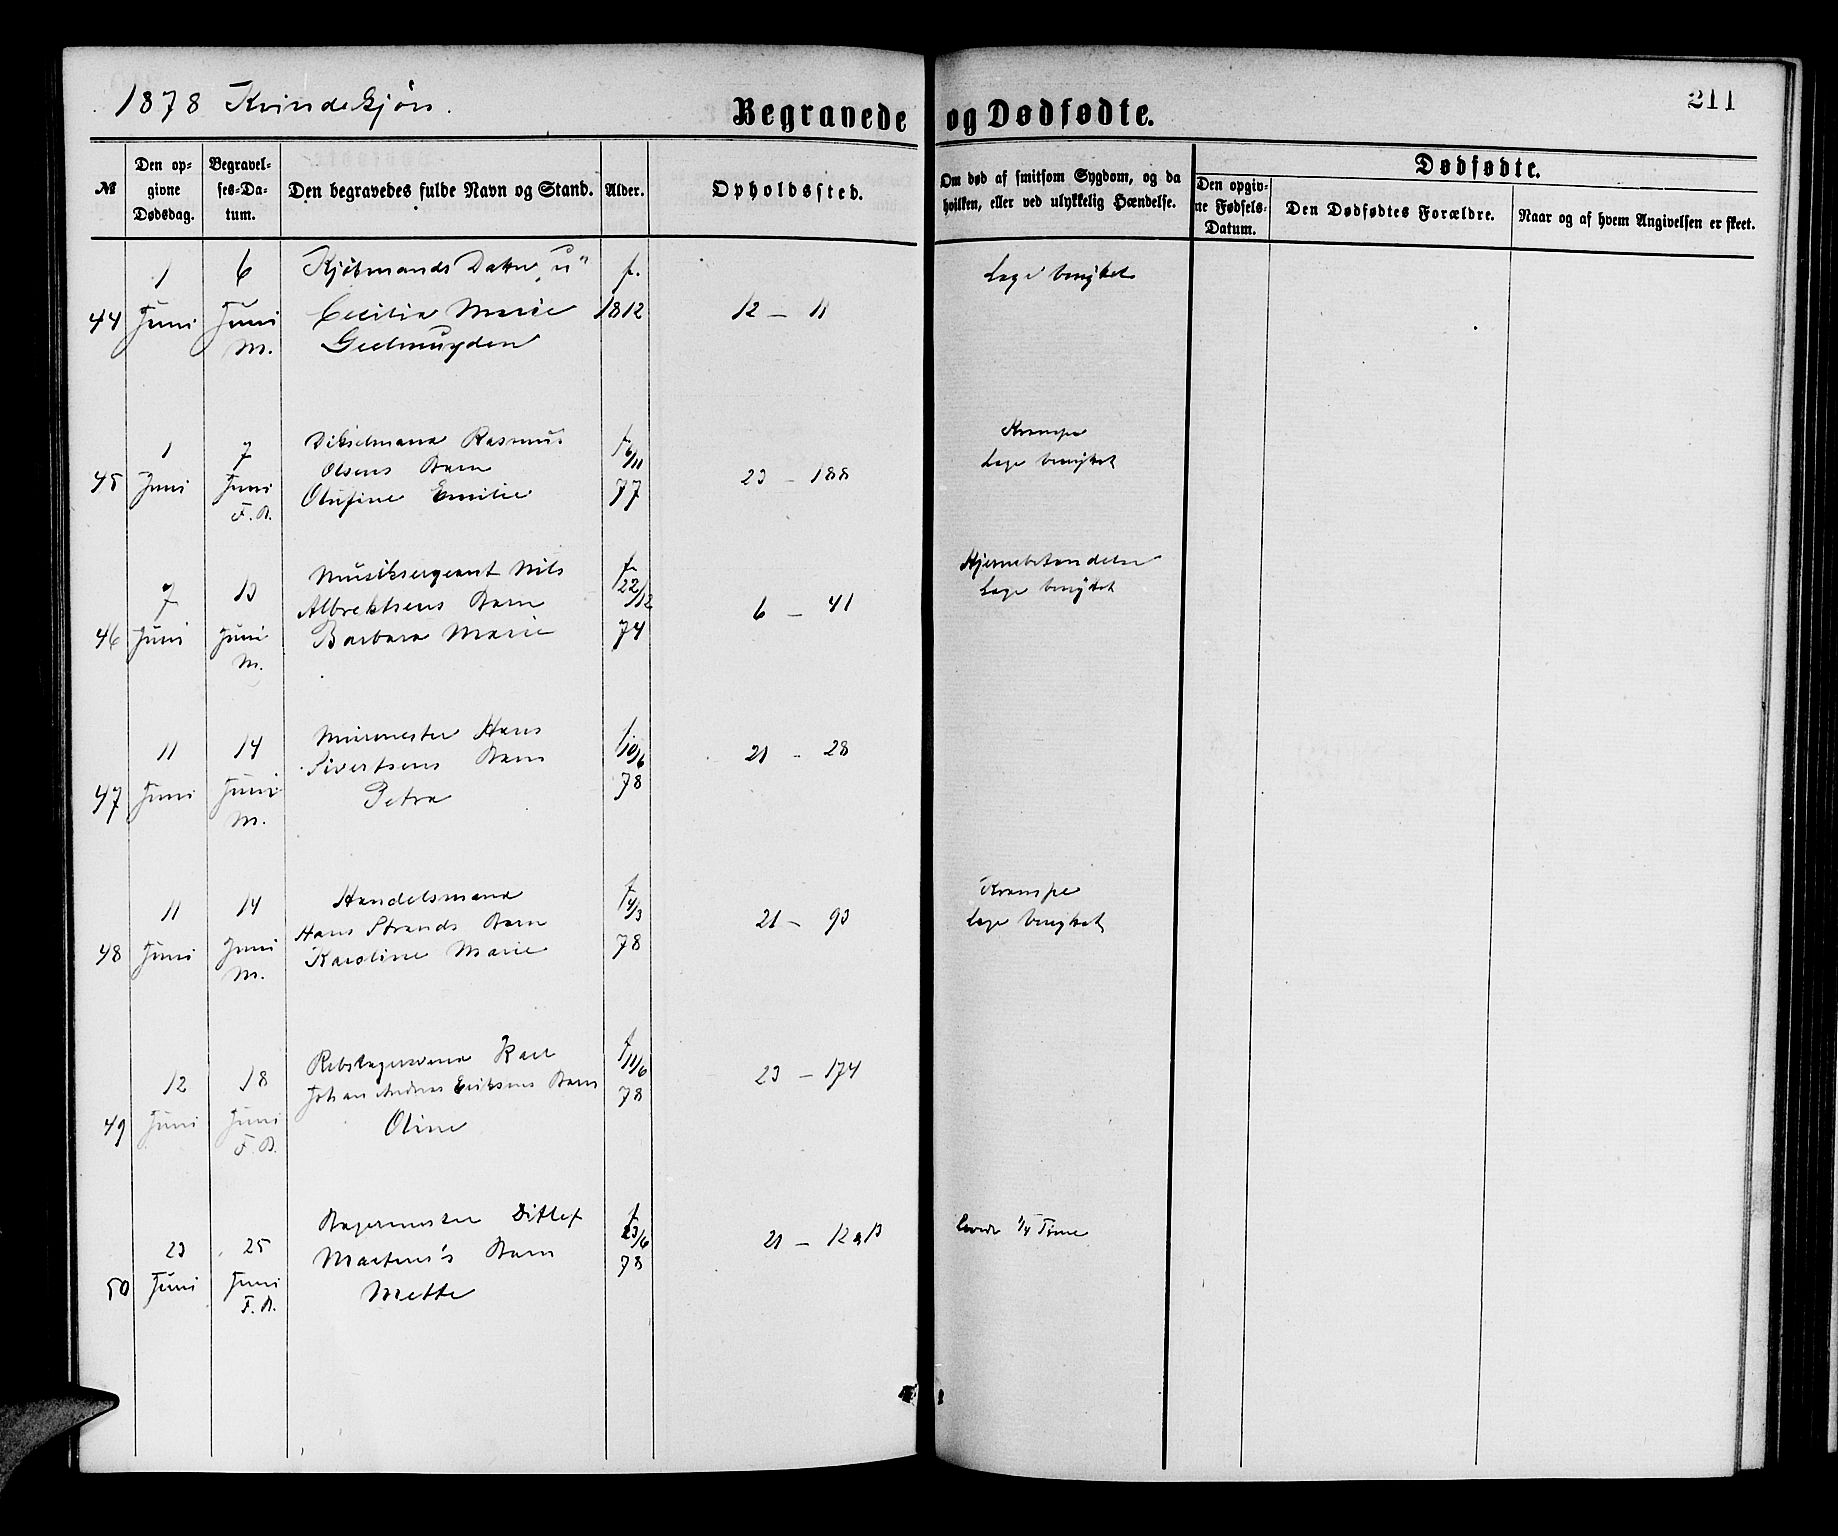 1878 Kvindekjøn.
Begravede og Dødfødte.
211
№
Den op-
givne
Dødsdag.
Begravel-
ses-Da-
tum.
Den begravedes fulde Navn og Stand.
Alder.
Opholdssted.
Om død af smitsom Sygdom, og da
hvilken, eller ved ulykkelig Hændelse.
Dødfødte.
Den opgiv-
ne Fødsels-
Datum.
Den Dødfødtes Forældre.
Naar og af hvem Angivelsen er skeet.
44
1
Juni
6
Juni
M.
Kjøbmands Datter „u“
Cecilia Marie
Geelmuyden
f.
1812
12 - 11
Læge benyttet
45
1
Juni
7
Juni
F. B.
Rasmus
Olsens Barn
Olufine Emilie
f
6/11
77
23 - 188
Krampe
Læge benyttet
46
7
Juni
13
Juni
M.
Musiksergeant Nils
Albrektsens Barn
Barbara Marie
f
22/12
74
6 - 41
Hjernebetændelse
Læge benyttet
47
11
Juni
14
Juni
M.
Murmester Hans
Sivertsens Barn
Petra
f
10/6
78
21 - 28
48
11
Juni
14
Juni
M.
Handelsmand
Hans Strands Barn
Karoline Marie
f
4/3
78
21 - 93
Krampe
Læge benyttet
49
12
Juni
18
Juni
F. B.
Rebslagersvend Karl
Johan Andreas Eriksens Barn
Oline
f
11/6
78
23 - 174
50
23
Juni
25
Juni
F. B.
Bagermester Ditlef
Martens's Barn
Mette
f
23/6
78
21 - 12 a B
levede 1/4 Time